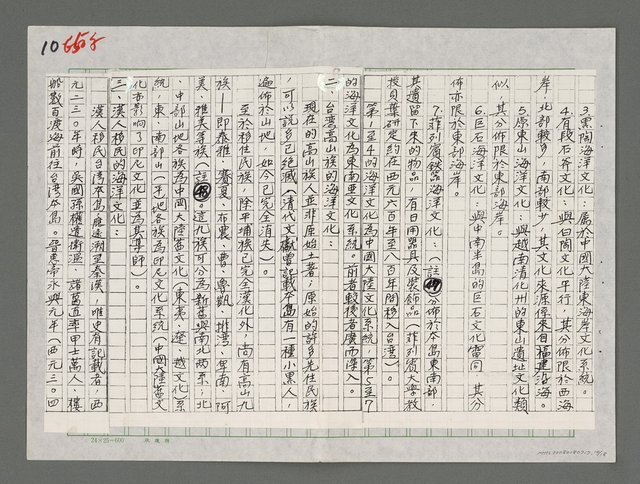 10
3.黑陶海洋文化：屬於中國大陸東海岸文化系統。
4.有段石斧文化：與白陶文化平行，其分佈限於西海
岸，北部較多，南部較少，其文化來源係來自福建沿海。
5.原東山海洋文化：與越南清化州的東山遺址文化類
似，其分佈限於東部海岸。
6.巨石海洋文化：與中南半島的巨石文化雷同，其分
佈亦限於東部海岸。
7.菲列賓鐵器海洋文化：（註㊼）分佈於本島東南部，
其遺留下來的物品，有日用器具及裝飾品（菲列賓大學教
授貝葉研定約在西元六百年至八百年間移入台灣）。
第1至4的海洋文化為中國大陸文化系統，第5至7
的海洋文化為東南亞文化系統。前者較後者廣而深入。
二、台灣高山族的海洋文化：
現在的高山族人並非原始土著；原始的許多先住民族
，可以說多已絕滅（清代文獻曾記載本島有一種小黑人，
遍佈於山地，如今已完全消失）。
至於移住民族，除平埔族已完全漢化外，尚有高山九
族——即泰雅、賽夏、布農、曹、魯凱、排灣、卑南、阿
美、雅美等族（註㊽）。這九族可分為新舊與南北兩系；北
、中部山地各族為中國大陸舊文化（東夷、遼越文化）系
統，東、南部山（平）地各族為印尼文化系統（中國大陸舊文
化亦影響了印尼文化並為其集師）。
三、漢人移民的海洋文化：
漢人移民台灣本島應遠溯至秦漢，唯史有記載者，西
元二三〇年時，吳國孫權遣衛溫、諸葛直率甲士萬人，樓
船數百度海前往台灣本島。晉惠帝永興元年（西元三〇四
24×25=600